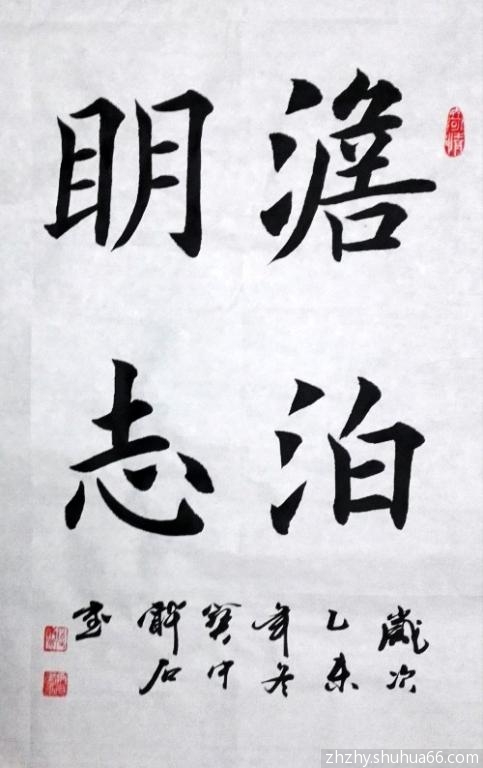 澹泊
明志
歲次
乙未
年冬
寶中
石
書
zhzhyshuhua66.com